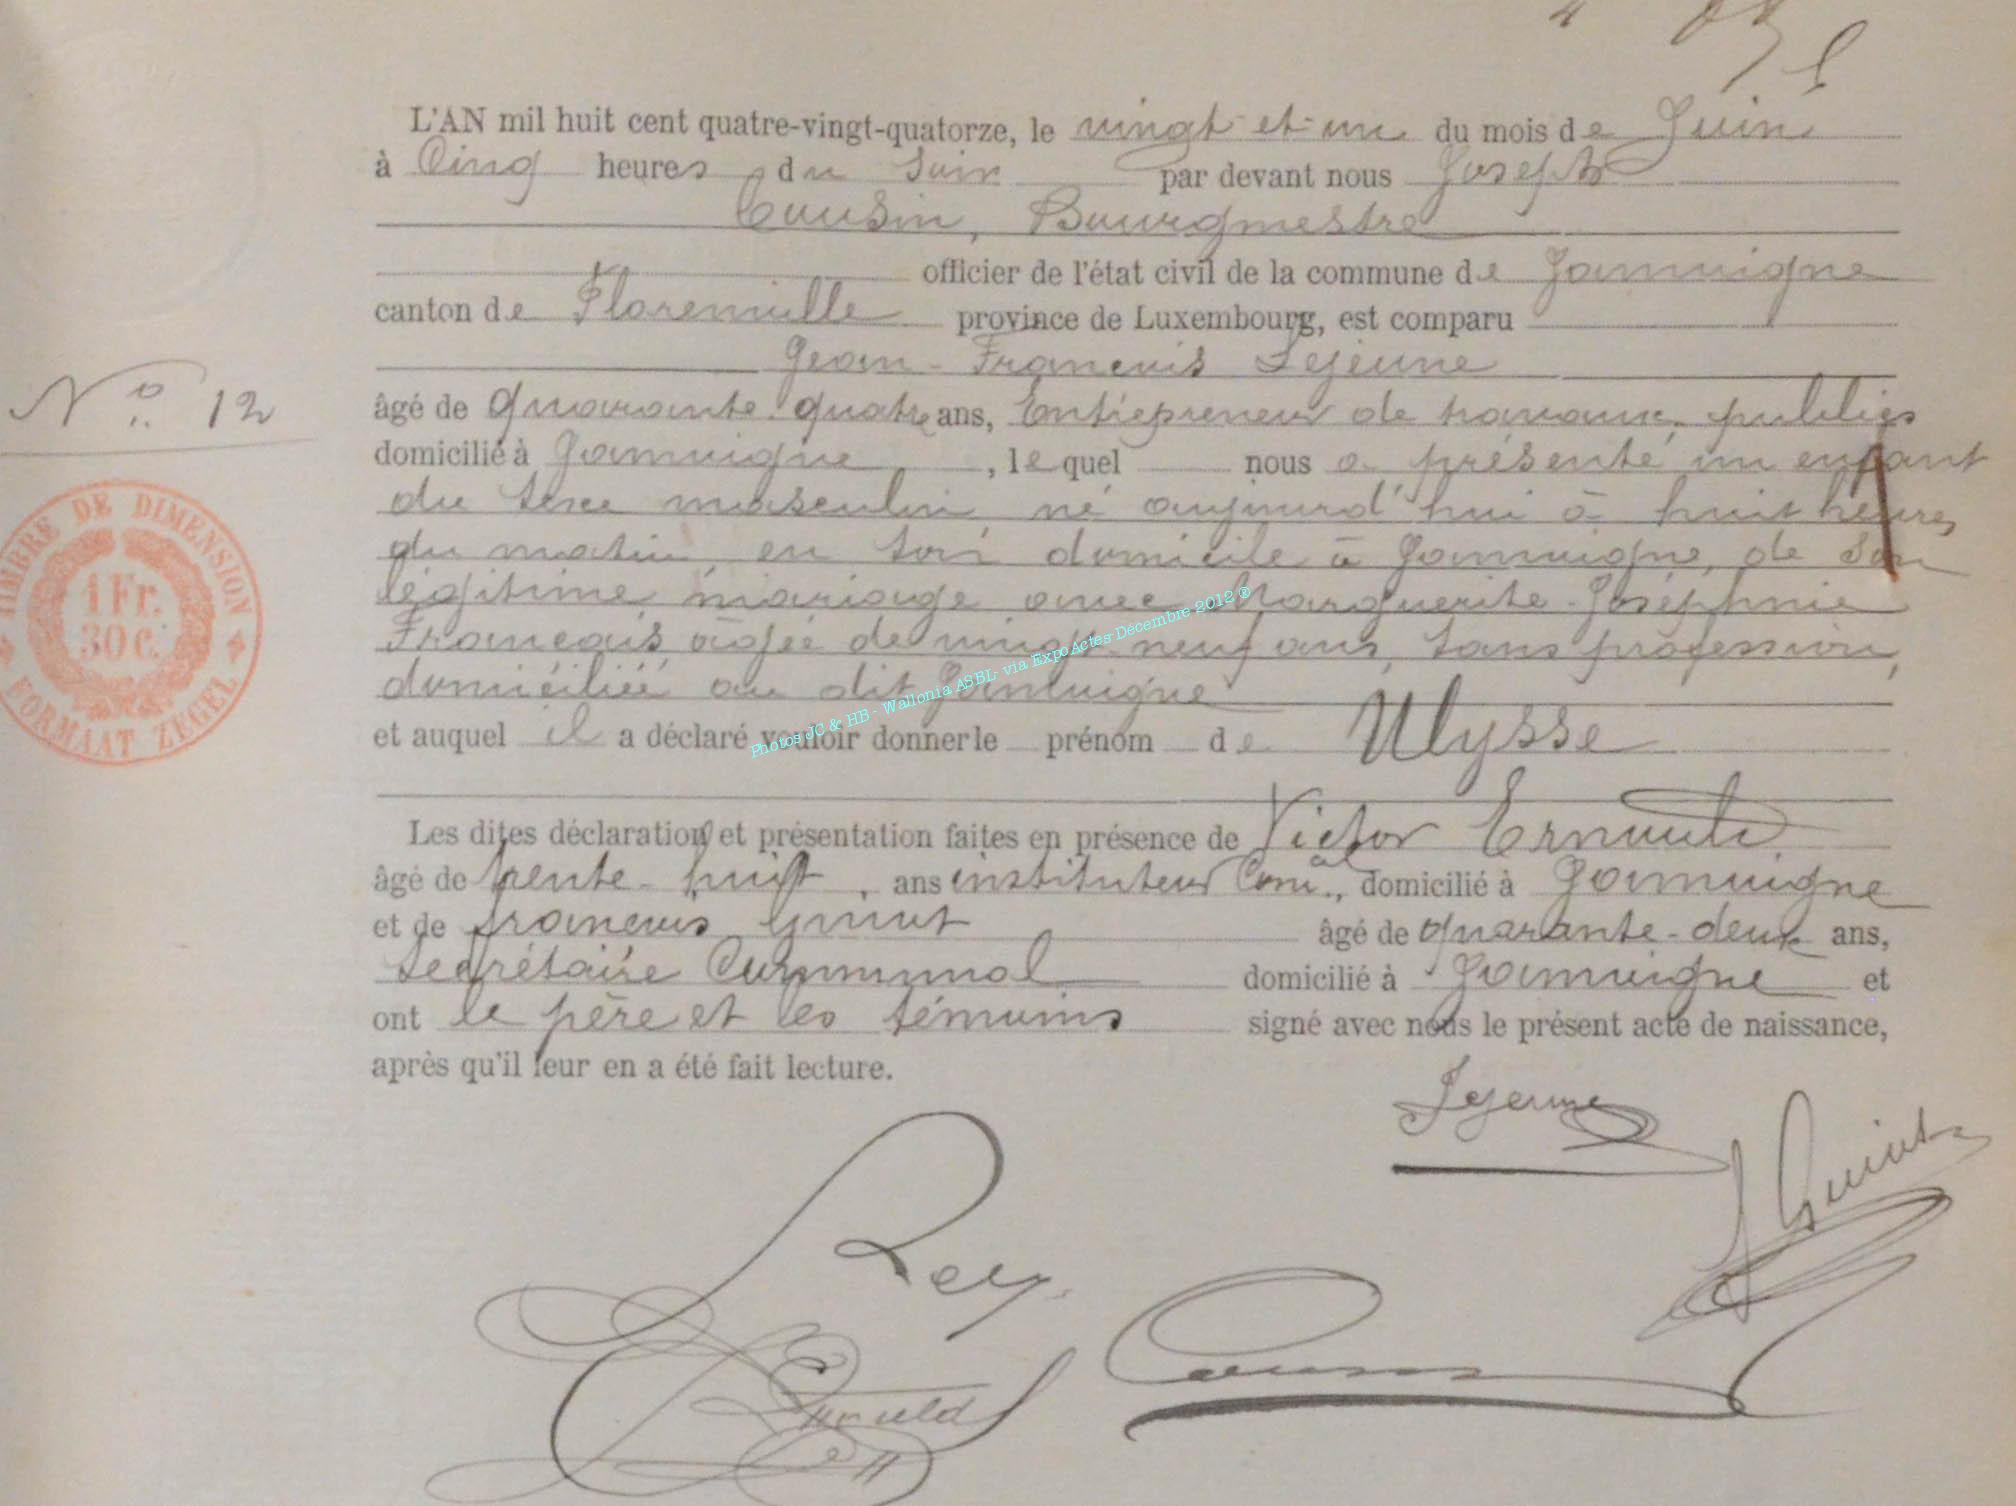 L'AN mil huit cent quatre-vingt-quatorze, le vingt-et-un du mois de Juin
à Cinq heures du Soir par devant nous Joseph
Cousin, Bourgmestre
officier de l'état civil de la commune de Jamoigne
canton de Florenville province de Luxembourg, est comparu
Jean-François Lejeune
Nº 12
âgé de Quarante-quatre ans, Entrepreneur de travaux publics
domicilié à Jamoigne, lequel nous a présenté un enfant
du sexe masculin, né aujourd'hui à huit heures
du matin, en son domicile à Jamoigne, de son
légitime mariage avec Marguerite-Joséphine
François âgée de vingt-neuf ans, sans profession,
domiciliée au dit Jamoigne
et auquel il a déclaré vouloir donner le prénom de Ulysse
Les dites déclaration et présentation faites en présence de Victor Ernould
âgé de trente-huit, ans instituteur Com.al, domicilié à Jamoigne
et de françois Guiot âgé de quarante-deux ans,
Secrétaire Communal domicilié à Jamoigne et
ont le père et les témoins signé avec nous le présent acte de naissance,
après qu'il leur en a été fait lecture.
TIMBRE DE DIMENSION
1 Fr.
30 c.
FORMAAT ZEGEL
Photos JC & HB - Wallonia ASBL- via ExpoActes-Décembre 2012 ®
Lejeune
Guiot
Rey.
Cousin
Ernould